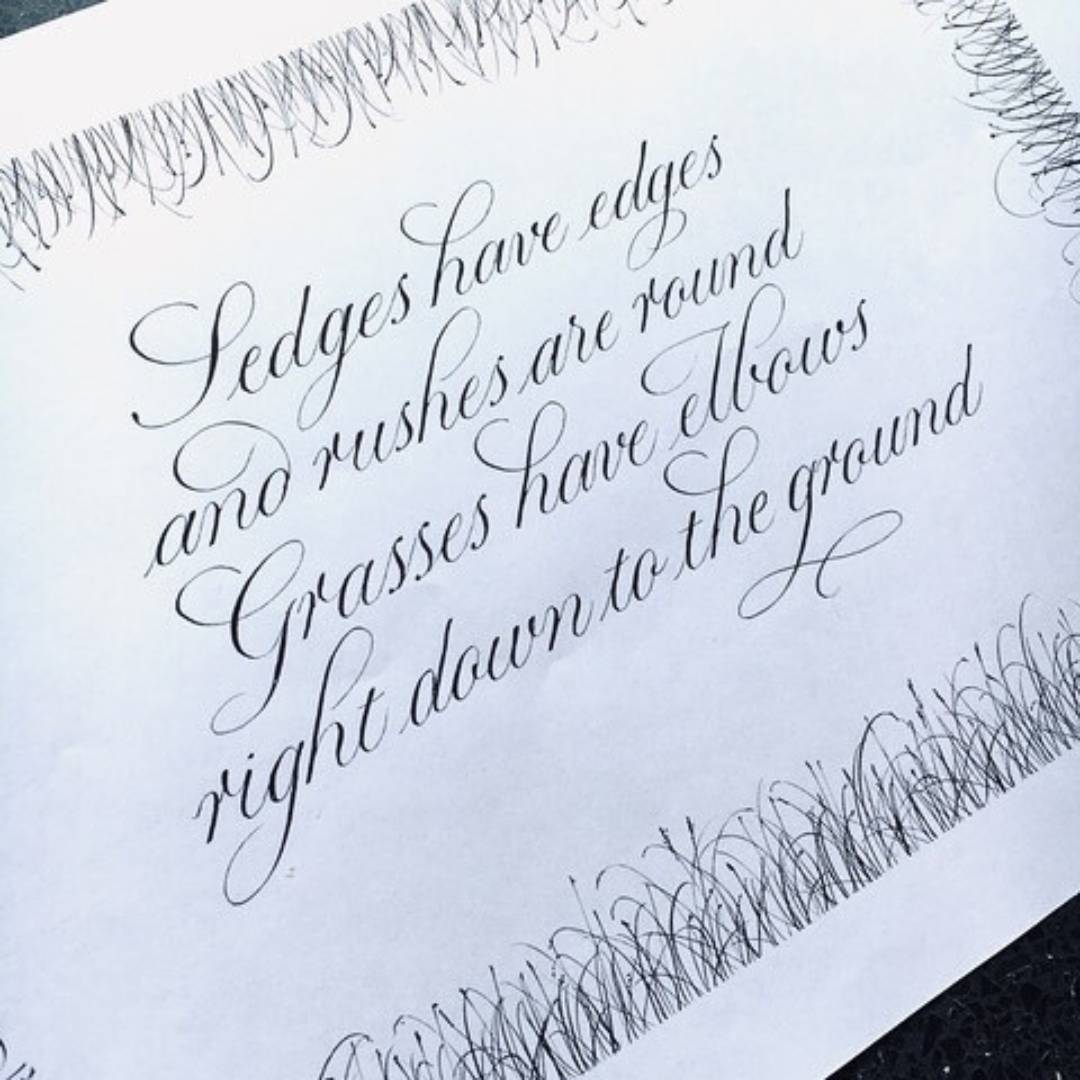 Sedges have edges
and rushes are round
Grasses have elbows
right down to the ground